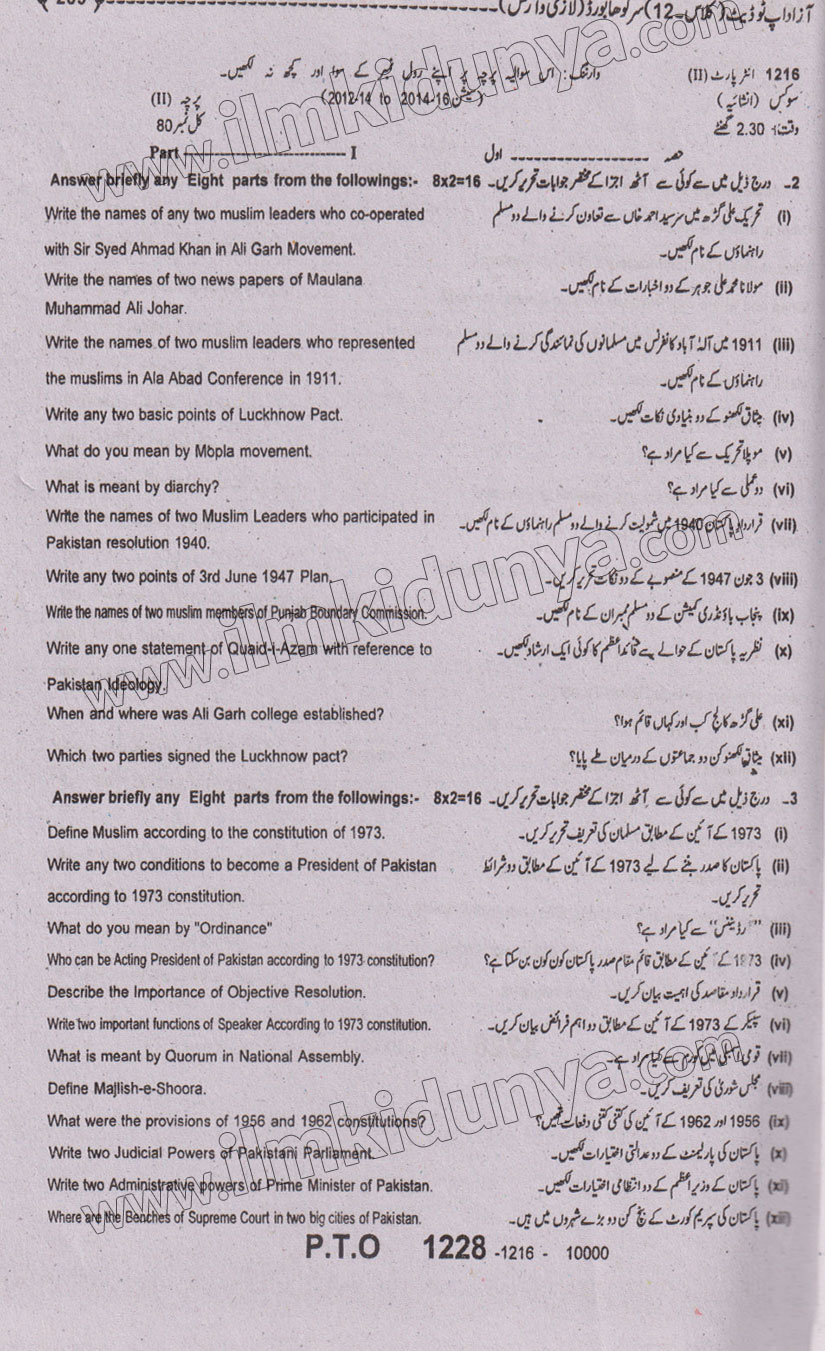 آزاد اپ ٹو ڈیٹ (کلاس۔12) سرگودھا بورڈ
1216 انٹر پارٹ (II) وارننگ: اس سوالیہ پرچہ پر اپنے رول نمبر کے سوا اور کچھ نہ لکھیں۔
سوکس (انشائیہ) (سیشن 2012-14 to 2014-16) پرچہ (II)
وقت: 2.30 گھنٹے کل نمبر 80
حصہ ---------- اول Part ---------- I
2۔ درج ذیل میں سے کوئی سے آٹھ اجزا کے مختصر جوابات تحریر کریں۔ 8x2=16 Answer briefly any Eight parts from the followings:-
(i) تحریک علی گڑھ میں سرسید احمد خاں سے تعاون کرنے والے دو مسلم Write the names of any two muslim leaders who co-operated
راہنماؤں کے نام لکھیں۔ with Sir Syed Ahmad Khan in Ali Garh Movement.
(ii) مولانا محمد علی جوہر کے دو اخبارات کے نام لکھیں۔ Write the names of two news papers of Maulana
Muhammad Ali Johar.
(iii) 1911 میں آلہ آباد کانفرنس میں مسلمانوں کی نمائندگی کرنے والے دو مسلم Write the names of two muslim leaders who represented
راہنماؤں کے نام لکھیں۔ the muslims in Ala Abad Conference in 1911.
(iv) میثاق لکھنو کے دو بنیادی نکات لکھیں۔ Write any two basic points of Luckhnow Pact.
(v) موپلا تحریک سے کیا مراد ہے؟ What do you mean by Mopla movement.
(vi) دو عملی سے کیا مراد ہے؟ What is meant by diarchy?
(vii) قرارداد پاکستان 1940 میں شمولیت کرنے والے دو مسلم راہنماؤں کے نام لکھیں۔ Write the names of two Muslim Leaders who participated in
Pakistan resolution 1940.
(viii) 3 جون 1947 کے منصوبے کے دو نکات تحریر کریں۔ Write any two points of 3rd June 1947 Plan.
(ix) پنجاب باؤنڈری کمیشن کے دو مسلم ممبران کے نام لکھیں۔ Write the names of two muslim members of Punjab Boundary Commission.
(x) نظریہ پاکستان کے حوالے سے قائداعظم کا کوئی ایک ارشاد لکھیں۔ Write any one statement of Quaid-i-Azam with reference to
Pakistan Ideology.
(xi) علی گڑھ کالج کب اور کہاں قائم ہوا؟ When and where was Ali Garh college established?
(xii) میثاق لکھنو کن دو جماعتوں کے درمیان طے پایا؟ Which two parties signed the Luckhnow pact?
3۔ درج ذیل میں سے کوئی سے آٹھ اجزا کے مختصر جوابات تحریر کریں۔ 8x2=16 Answer briefly any Eight parts from the followings:-
(i) 1973 کے آئین کے مطابق مسلمان کی تعریف تحریر کریں۔ Define Muslim according to the constitution of 1973.
(ii) پاکستان کا صدر بننے کے لیے 1973 کے آئین کے مطابق دو شرائط Write any two conditions to become a President of Pakistan
تحریر کریں۔ according to 1973 constitution.
(iii) "آرڈیننس" سے کیا مراد ہے؟ What do you mean by "Ordinance"
(iv) 1973 کے آئین کے مطابق قائم مقام صدر پاکستان کون کون بن سکتا ہے؟ Who can be Acting President of Pakistan according to 1973 constitution?
(v) قرارداد مقاصد کی اہمیت بیان کریں۔ Describe the Importance of Objective Resolution.
(vi) سپیکر کے 1973 کے آئین کے مطابق دو اہم فرائض بیان کریں۔ Write two important functions of Speaker According to 1973 constitution.
(vii) قومی اسمبلی میں کورم سے کیا مراد ہے۔ What is meant by Quorum in National Assembly.
(viii) مجلس شوریٰ کی تعریف کریں۔ Define Majlish-e-Shoora.
(ix) 1956 اور 1962 کے آئین کی کتنی کتنی دفعات تھیں؟ What were the provisions of 1956 and 1962 constitutions?
(x) پاکستان کی پارلیمنٹ کے دو عدالتی اختیارات لکھیں۔ Write two Judicial Powers of Pakistani Parliament.
(xi) پاکستان کے وزیراعظم کے دو انتظامی اختیارات لکھیں۔ Write two Administrative powers of Prime Minister of Pakistan.
(xii) پاکستان کی سپریم کورٹ کے بنچ کن دو بڑے شہروں میں ہیں۔ Where are the Benches of Supreme Court in two big cities of Pakistan.
P.T.O 1228 -1216 - 10000
www.ilmkidunya.com
www.ilmkidunya.com
www.ilmkidunya.com